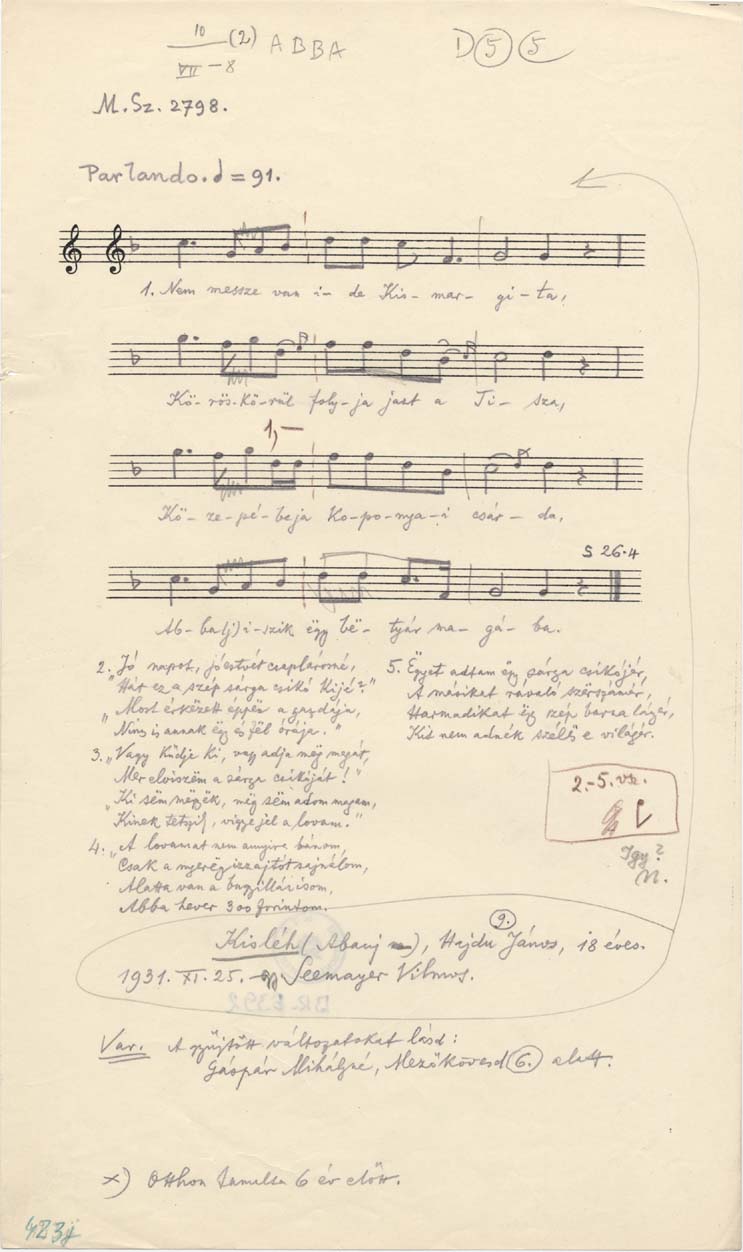 10 (2) ABBA D 5 5
VII - 8
M. Sz. 2798.
Parlando. = 91.
1. Nem messze van i- de Kis- mar- gi- ta,
Kö- rös-kö-rül foly-ja jaszt a Ti- sza,
1,-
Kö- ze-pé-beja ko-po-nya-i csár- da,
S 26.4
Ab- ba(j) i-szik ëgy bë- tyár ma- gá- ba.
2. "Jó napot, jóestvét csaplárosné,
"Hát ez a szép sárga csikó kijé?"
"Most érkëzëtt éppën a gazdája,
Nincs is annak ëgy es fél órája."
3. "Vagy küdje ki, vagy adja mëg magát,
Mer elviszëm a sárga csikóját!"
"Ki sëm mëgyëk, még sëm adom magam,
Kinek tetszik, vigye jel a lovam."
4. "A lovamat nem annyira bánom,
Csak a nyerëg izzajtót sajnálom,
Alatta van a bugyillárisom,
Abba hever 300 forintom.
5. Ëgyet adtam ëgy sárga csikójér,
A másikat rávaló szërszámér,
Harmadikat ëgy szép barna lányér,
Kit nem adnék szélës e világér.
2.-5. vsz.
Igy?
Kisléh (Abauj), Hajdu János, 18 éves. 9.
1931. XI. 25. Seemayer Vilmos.
BR. 2392
Var. A gyűjtött változatokat lásd:
Gáspár Mihályné, Mezőkövesd 6. alatt.
x) Otthon tanulta 6 év előtt.